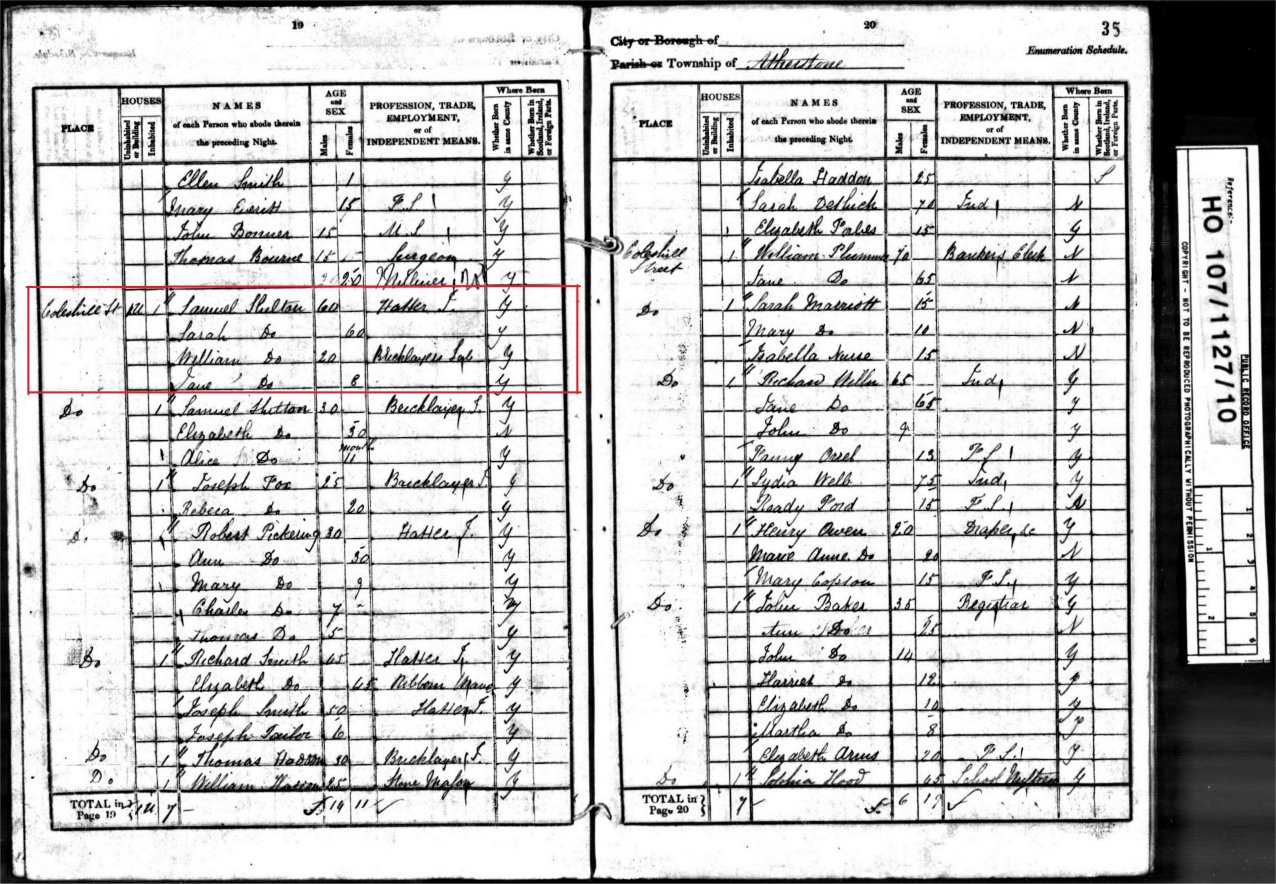 19
PLACE
HOUSES
Uninhabited or Building
Inhabited
NAMES
of each Person who abode therein
the preceding Night.
AGE
and
SEX
Males
Females
PROFESSION, TRADE,
EMPLOYMENT,
or of
INDEPENDENT MEANS.
Where Born
Whether Born in same County
Whether Born in Scotland, Ireland, or Foreign Parts.
Ellen Smith 1 Y
Mary Everitt 15 F.S. Y
John Bonner 15 M.S. Y
Thomas Bourne 15 Surgeon Y
Y
Coleshill St 1 Samuel Shelton 60 Hatter J. Y
Sarah Do 60 Y
William Do 20 Bricklayers Lab Y
Jane Do 8 Y
Do 1 Samuel Shelton 30 Bricklayer J. Y
Elizabeth Do 30 N
months
Alice Do 11 Y
Do 1 Joseph Fox 25 Bricklayer J. Y
Rebeca Do 20 Y
Do 1 Robert Pickering 30 Hatter J. Y
Ann Do 30 Y
Mary Do 9 Y
Charles Do 7 Y
Thomas Do 5 Y
Do 1 Richard Smith 45 Hatter J. Y
Elizabeth Do 45 Ribbon Y
Joseph Smith 50 Hatter J. Y
Joseph Tailor 6 Y
Do 1 Thomas 30 Bricklayer J. Y
Do 1 William 25 Stone Mason Y
TOTAL in Page 19 7 14 11
20
35
City or Borough of
Parish or Township of Atherstone
Enumeration Schedule.
PLACE
HOUSES
Uninhabited or Building
Inhabited
NAMES
of each Person who abode therein
the preceding Night.
AGE
and
SEX
Males
Females
PROFESSION, TRADE,
EMPLOYMENT,
or of
INDEPENDENT MEANS.
Where Born
Whether Born in same County
Whether Born in Scotland, Ireland, or Foreign Parts.
Isabella Haddon 25 S
Sarah 70 Ind N
Elizabeth 15 Y
Coleshill Street 1 William Plummer 70 Bankers Clerk N
Jane Do 65 N
Do 1 Sarah Marriott 15 N
Mary Do 10 N
Isabella Nurse 15 N
Do 1 Richard 65 Ind Y
Jane Do 65 Y
John Do 9 Y
Fanny Orrel 13 F.S. Y
Do 1 Lydia Webb 75 Ind Y
Ready Ford 15 F.S. N
Do 1 Henry Owen 20 Draper &c Y
Marie Anne Do 20 N
Mary Copson 15 F.S. Y
Do 1 John Baker 35 Registrar Y
Ann Do 25 N
John Do 14 Y
Harriet Do 12 Y
Elizabeth Do 10 Y
Martha Do 8 Y
Elizabeth Arms 20 F.S. Y
Do 1 Sophia Hood 45 School Mistress Y
TOTAL in Page 20 7 6 19
Reference:-
HO 107/1127/10
PUBLIC RECORD OFFICE
COPYRIGHT - NOT TO BE REPRODUCED PHOTOGRAPHICALLY WITHOUT PERMISSION
1 2 3 4 5 6
1 2